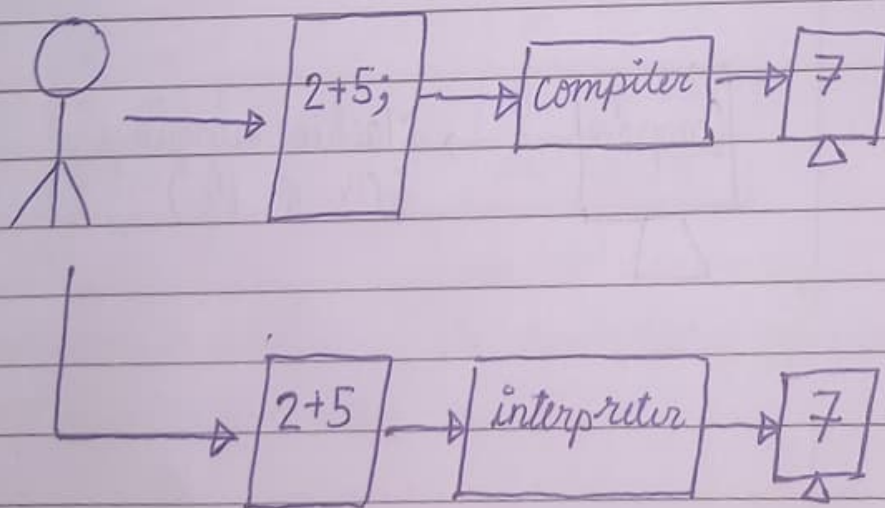 2+5; compiler 7
2+5 interpreter 7